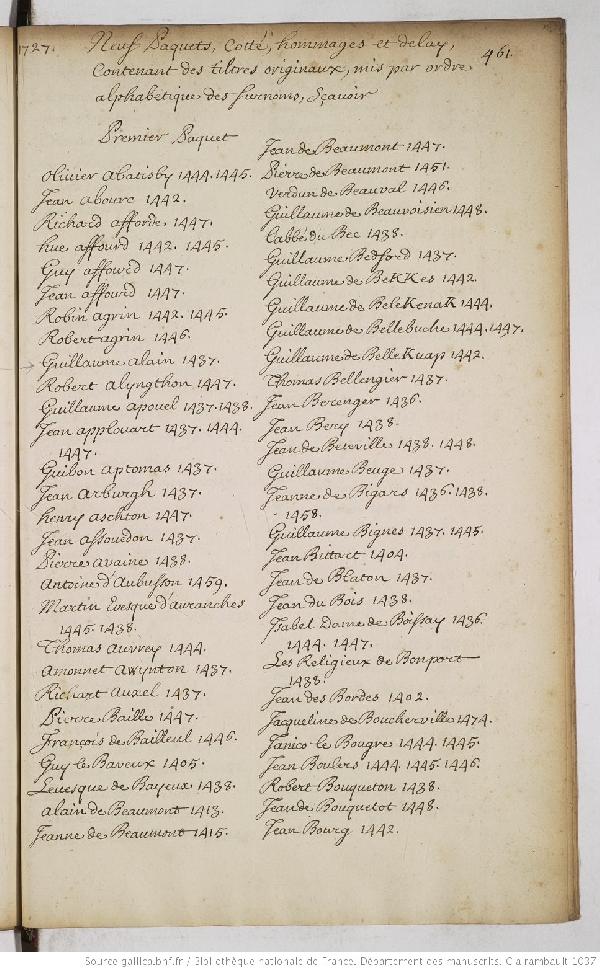 1727.
461.
Neuf Paquets, Cotté, hommages et delay,
Contenant des tiltres originaux, mis par ordre
alphabetique des surnoms, Sçavoir
Premier Paquet
Olivier abatisby 1444. 1445.
Jean abourc 1442.
Richard afforde 1447.
hue affourd 1442. 1445.
Guy affourd 1447.
Jean affourd 1447.
Robin agrin 1442. 1445.
Robert agrin 1446.
Guillaume alain 1437.
Robert alyngthon 1447.
Guillaume apouel 1437. 1438.
Jean applouart 1437. 1444.
1447.
Guibon aptomas 1437.
Jean arburgh 1437.
henry aschton 1447.
Jean assourdon 1437.
Pierre avaine 1438.
Antoine d'Aubusson 1459.
Martin Evesque d'avranches
1445. 1438.
Thomas auvrey 1444.
amonnet awynton 1437.
Richart auael 1437.
Pierre Baille 1447.
François de Bailleul 1446.
Guy le Baveux 1405.
Levesque de Bayeux 1438.
alain de Beaumont 1413.
Jeanne de Beaumont 1415.
Jean de Beaumont 1447.
Pierre de Beaumont 1451.
Verdun de Beauval 1446.
Guillaume de Beauvoisien 1448.
L'abbé du Bec 1438.
Guillaume Bedford 1437.
Guillaume de BeKKes 1442.
Guillaume de BeleKenaK 1444.
Guillaume de Bellebuche 1444. 1447.
Guillaume de BelleKuap 1442.
Thomas Bellengier 1437.
Jean Berenger 1436.
Jean Bery 1438.
Jean de Beteville 1438. 1448.
Guillaume Beuge 1437.
Jeanne de Bigars 1436. 1438.
1458.
Guillaume Bignes 1437. 1445.
Jean Butart 1404.
Jean de Blaton 1437.
Jean du Bois 1438.
Isabel Dame de Boissay 1436.
1444. 1447.
Les Religieux de Bonport
1438.
Jean des Bordes 1402.
Jacqueline de Boucherville 1474.
Janico le Bougre 1444. 1445.
Jean Boulers 1444. 1445. 1446.
Robert Bouqueton 1438.
Jean de Bouquetot 1448.
Jean Bourg 1442.
Source gallica.bnf.fr / Bibliothèque nationale de France. Département des manuscrits. Clairambault 1037